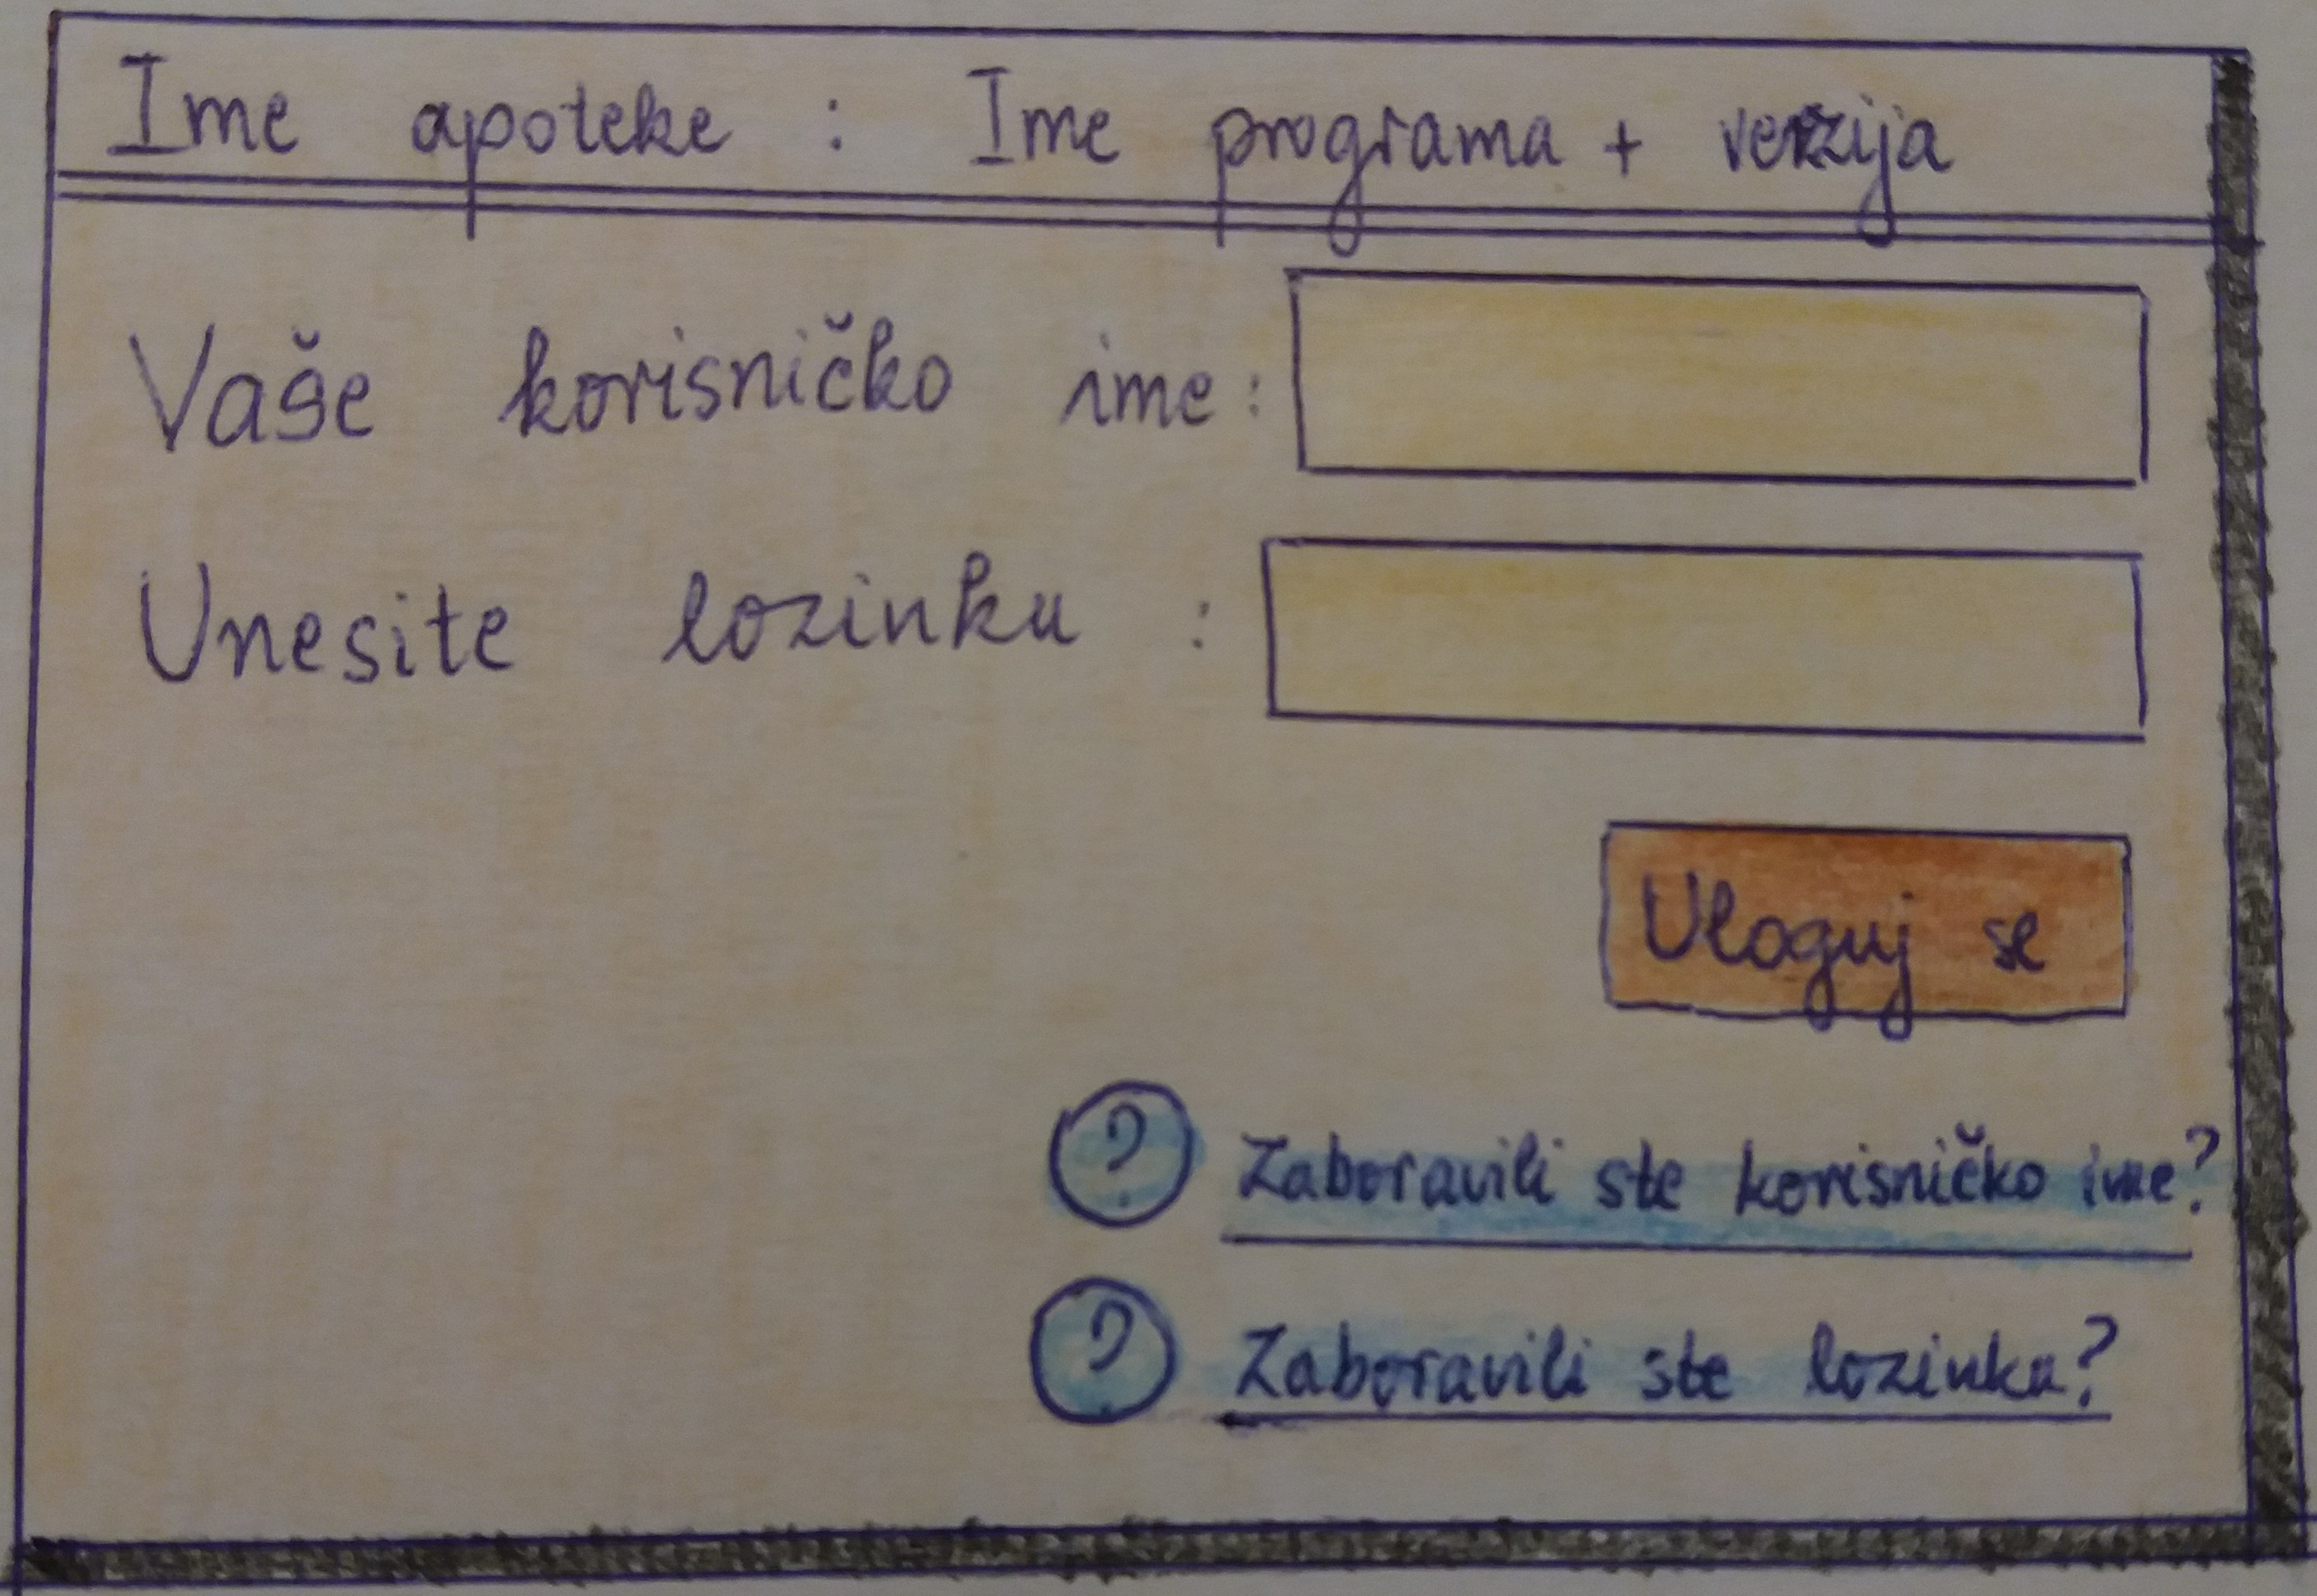 Ime apoteke : Ime programa + verzija
Vaše korisničko ime:
Unesite lozinku :
Uloguj se
? Zaboravili ste korisničko ime?
? Zaboravili ste lozinku?